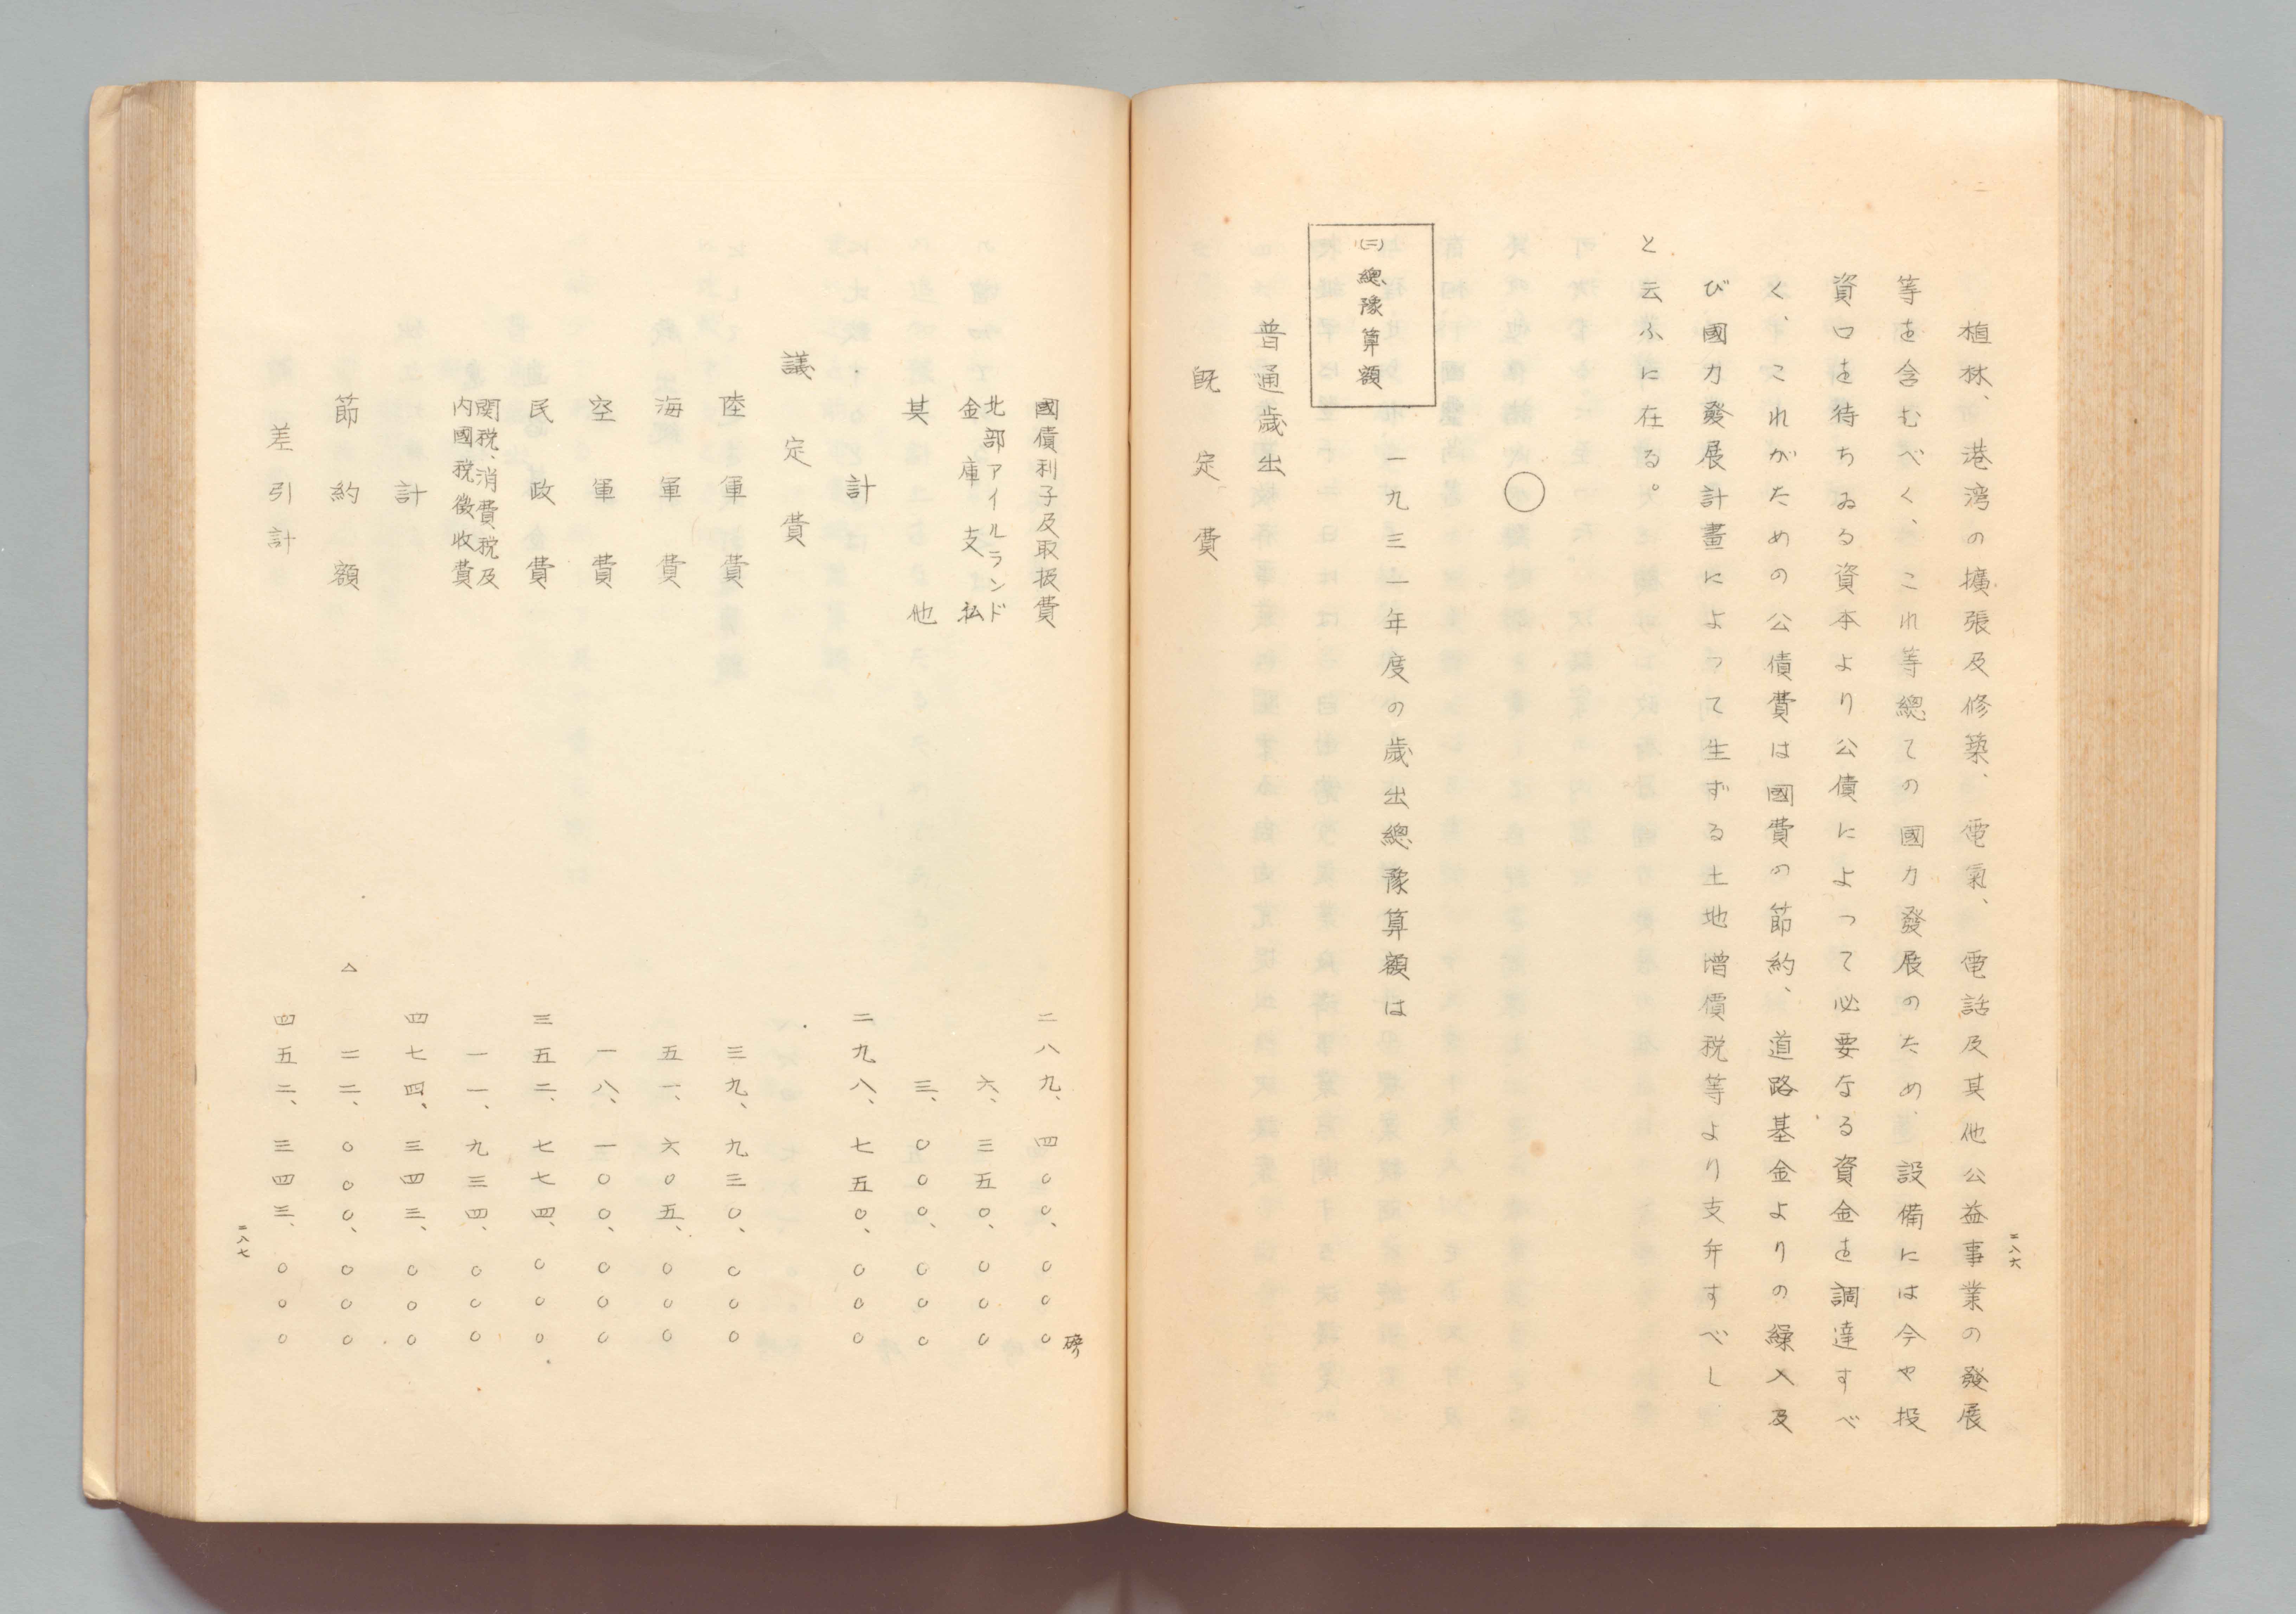 二八六
植林、港湾の擴張及修築、電氣、電話及其他公益事業の發展
等を含むべく、これ等總ての國力發展のため、設備には今や投
資口を待ちゐる資本より公債によって必要なる資金を調達すべ
く、これがための公債費は國費の節約、道路基金よりの繰入及
び國力發展計畫によって生ずる土地増價税等より支弁すべし
と云ふに在る。
○
(三)總豫算額
一九三一年度の歳出總豫算額は
普通歳出
既定費
國債利子及取扱費 二八九、四〇〇、〇〇〇磅
北部アイルランド
金庫支払 六、三五〇、〇〇〇
其他 三、〇〇〇、〇〇〇
計 二九八、七五〇、〇〇〇
議定費
陸軍費 三九、九三〇、〇〇〇
海軍費 五一、六〇五、〇〇〇
空軍費 一八、一〇〇、〇〇〇
民政費 三五二、七七四、〇〇〇
関税、消費税及
内國税徴收費 一一、九三四、〇〇〇
計 四七四、三四三、〇〇〇
節約額 △ 二二、〇〇〇、〇〇〇
差引計 四五二、三四三、〇〇〇
二八七